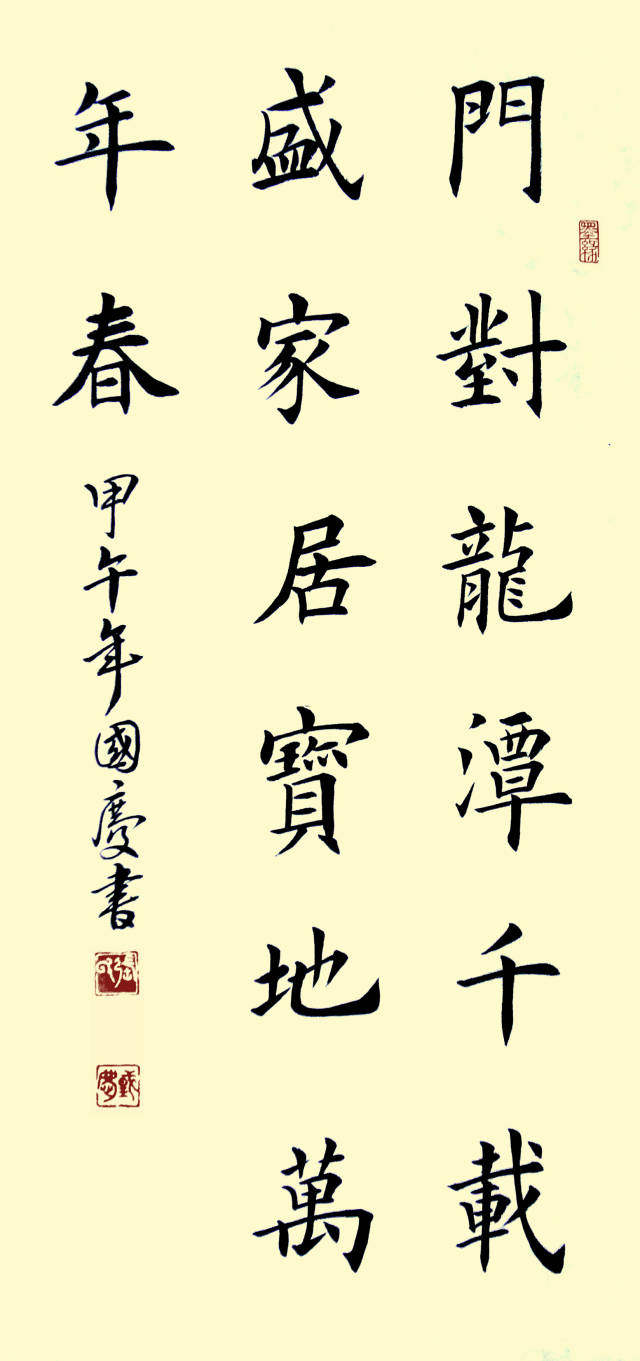 門對龍潭千載
盛家居寶地萬
年春
甲午年國慶書